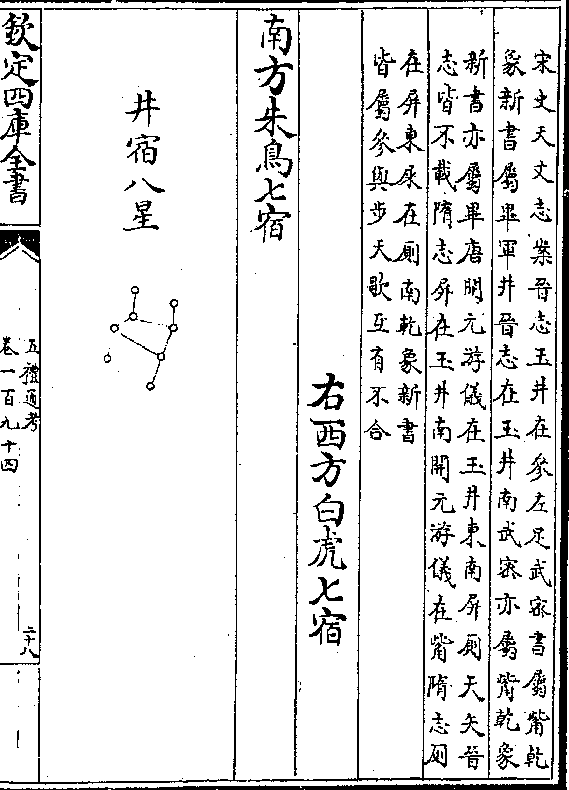 宋史天文志案晉志玉井在參左足武密書屬觜乾
象新書屬畢軍井晉志在玉井南武密亦屬觜乾象
新書亦屬畢唐開元游儀在玉井東南屏厠天矢晉
志皆不載隋志屏在玉井南開元游儀在觜隋志厠
在屏東屎在厠南乾象新書
皆屬參與步天歌互有不合
右西方白虎七宿
南方朱鳥七宿
井宿八星
欽定四庫全書
五禮通考
卷一百九十四
二十八